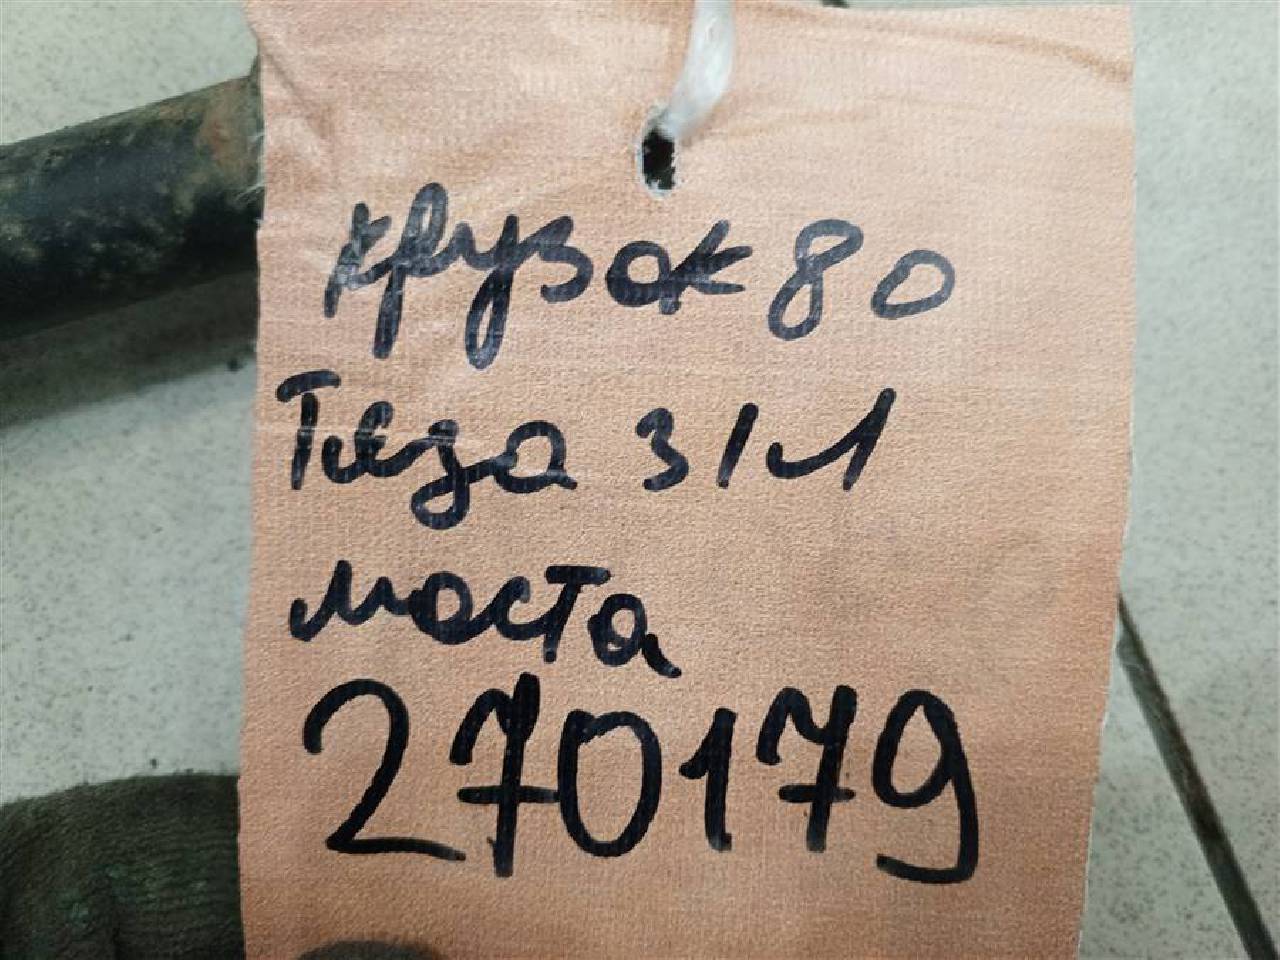 Крузак 80
Тяга з/м
моста
270179